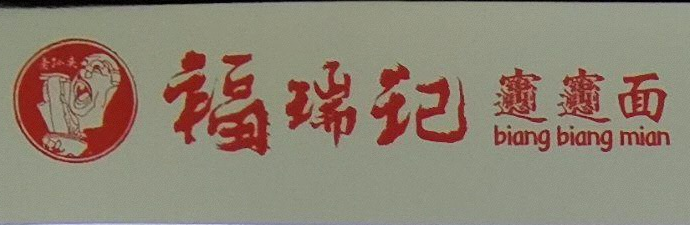 老孙头
福瑞记
𰻞𰻞面
biang biang mian